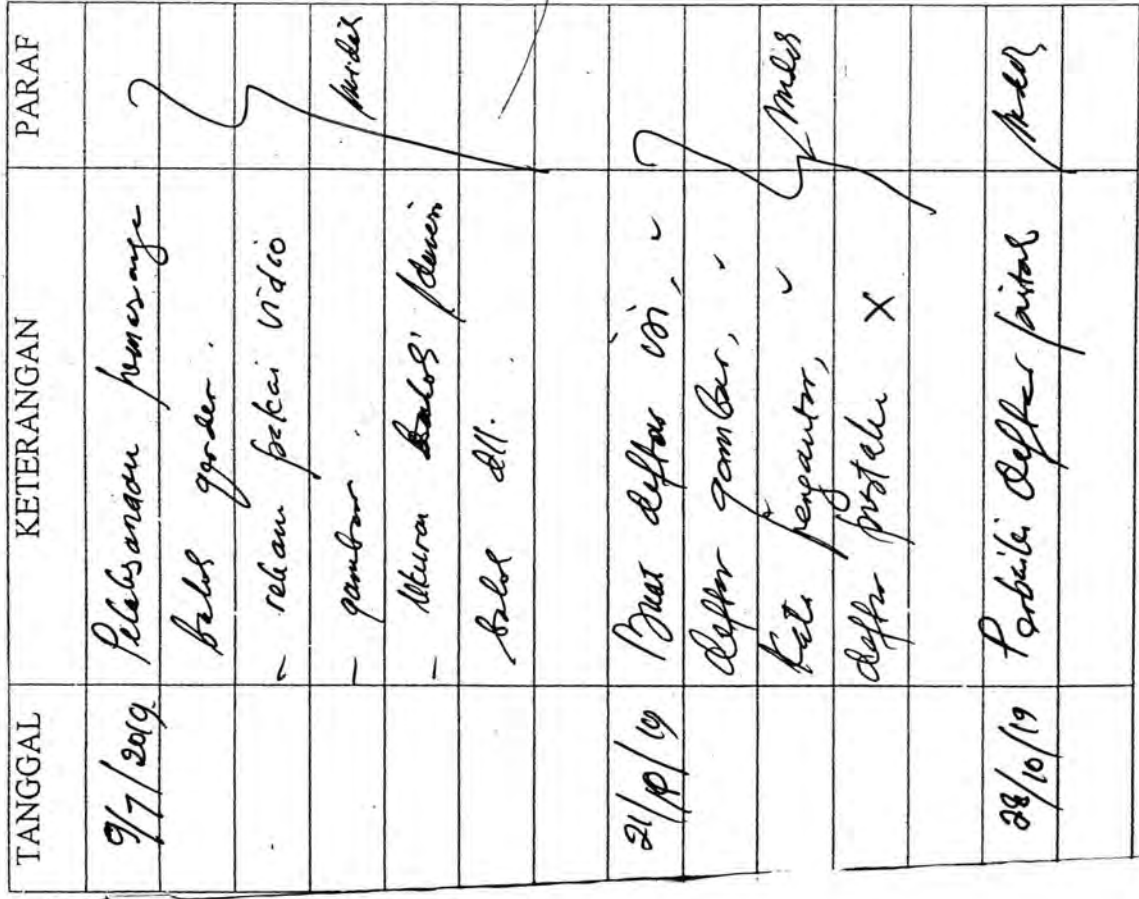 TANGGAL KETERANGAN PARAF
9/7/2019 Pelaksanaan pemasangan
balok gorder.
- rekam pakai vidio
- gambar
- Ukuran balok / dimensi
balok dll.
21/10/19 Buat daftar isi, ✓
daftar gambar, ✓
Kata pengantar, ✓
daftar pustaka X
28/10/19 Perbaiki daftar pustak